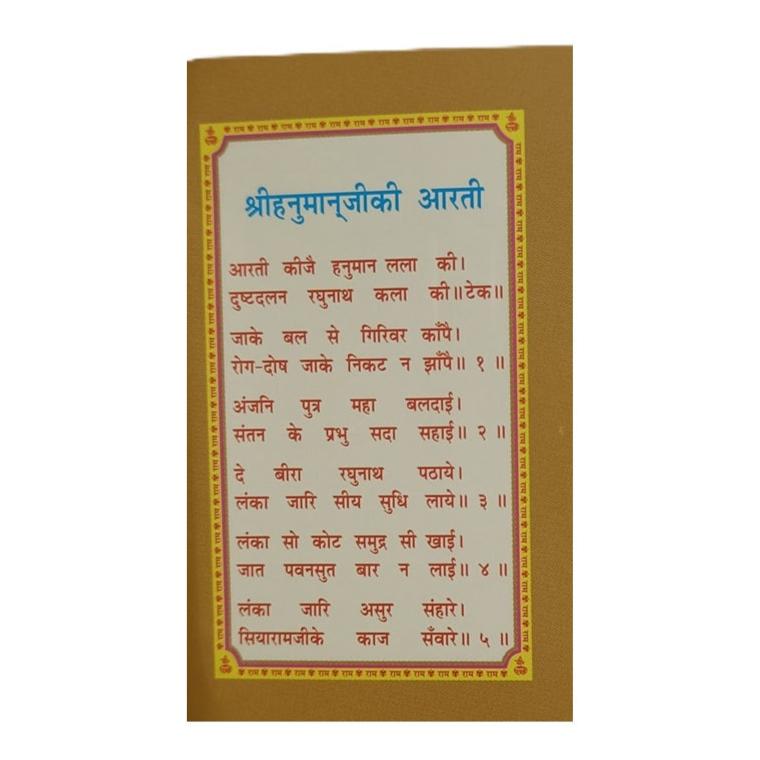 श्रीहनुमान्‌जीकी आरती
आरती कीजै हनुमान लला की।
दुष्टदलन रघुनाथ कला की॥टेक॥
जाके बल से गिरिवर काँपै।
रोग-दोष जाके निकट न झाँपै॥ १ ॥
अंजनि पुत्र महा बलदाई।
संतन के प्रभु सदा सहाई॥ २ ॥
दे बीरा रघुनाथ पठाये।
लंका जारि सीय सुधि लाये॥ ३ ॥
लंका सो कोट समुद्र सी खाई।
जात पवनसुत बार न लाई॥ ४ ॥
लंका जारि असुर संहारे।
सियारामजीके काज सँवारे॥ ५ ॥